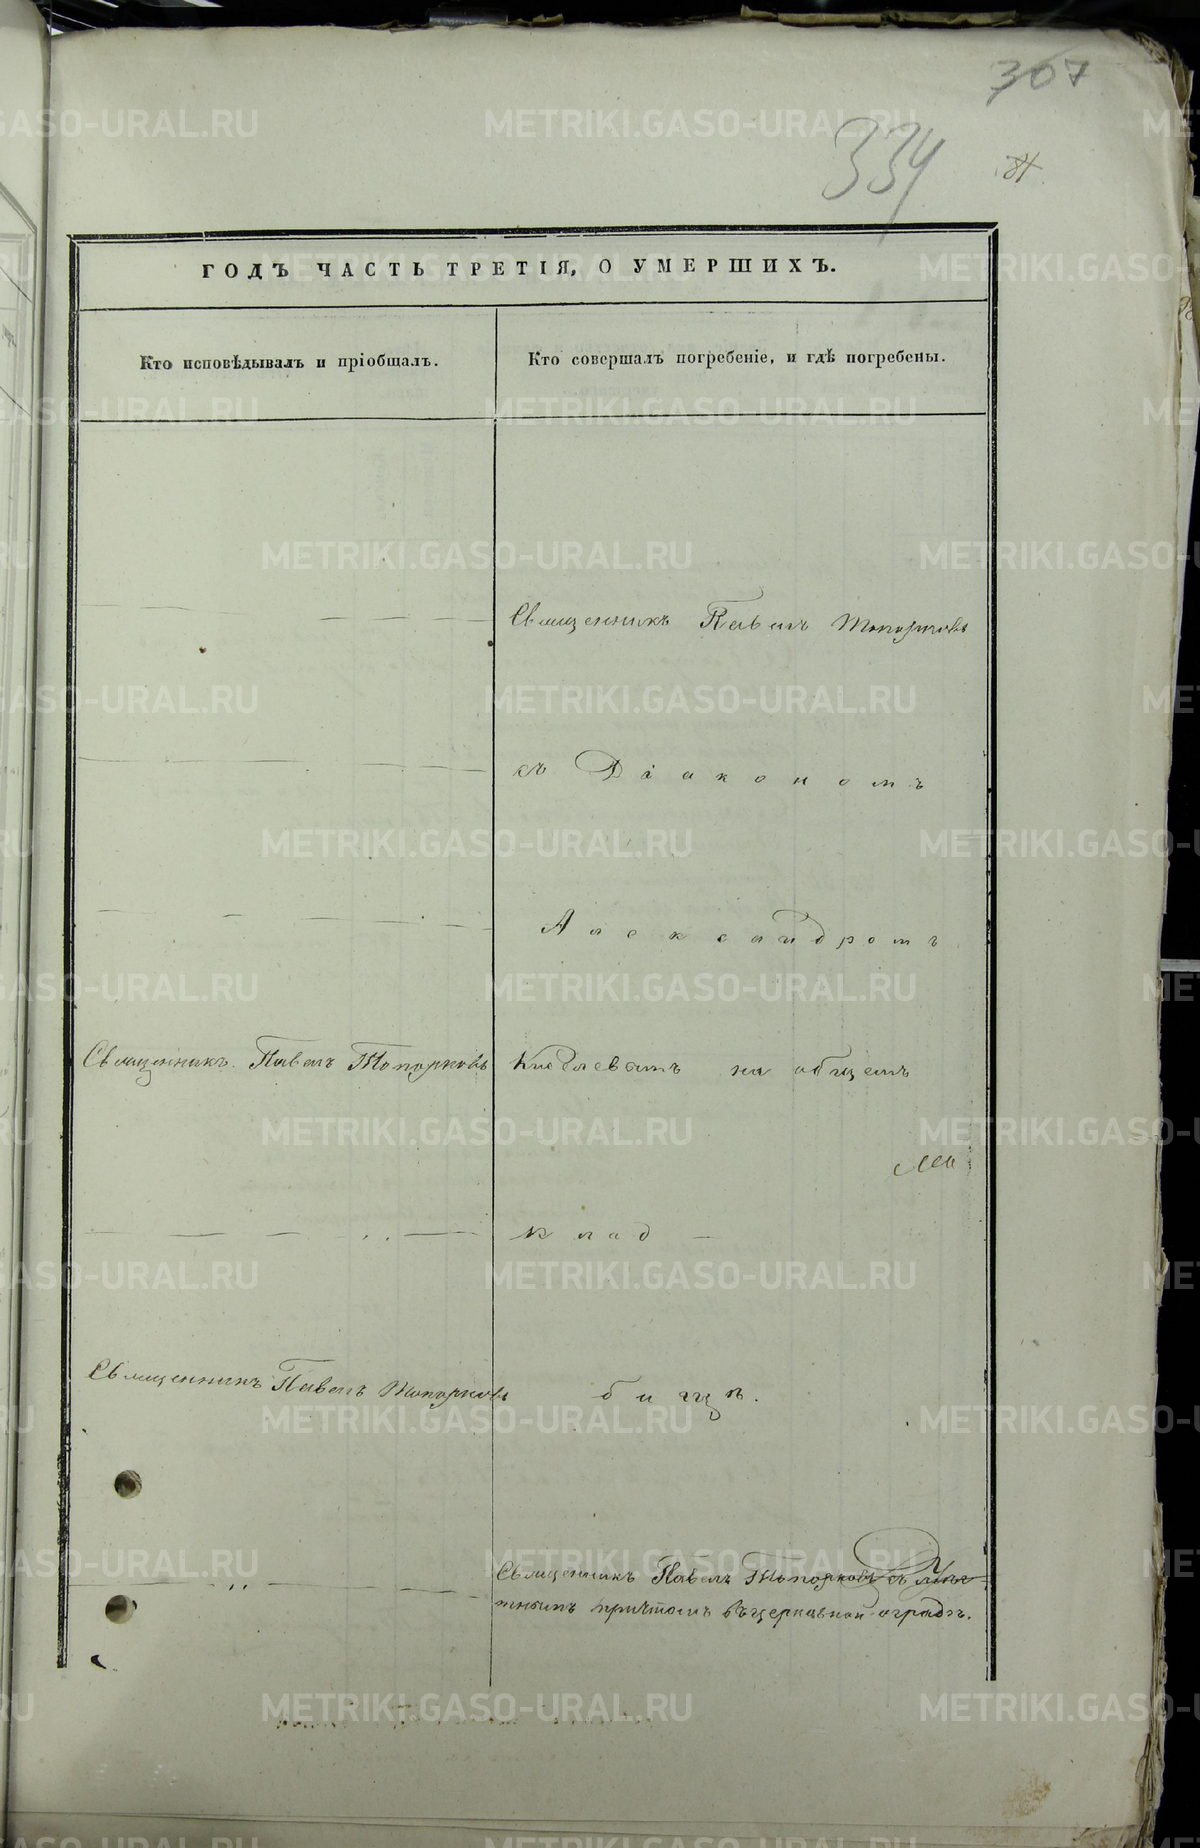 307
334
ГОДЪ ЧАСТЬ ТРЕТІЯ, О УМЕРШИХЪ.
Кто исповѣдывалъ и пріобщалъ.
Кто совершалъ погребеніе, и гдѣ погребены.
Священникъ Павелъ Топорковъ
съ Діакономъ
Александромъ
Священникъ Павелъ Топорковъ
на общемъ
клад
Священникъ Павелъ Топорковъ
бищѣ.
Священникъ Павелъ Топорковъ съ
причтомъ въ церковной оградѣ.
METRIKI.GASO-URAL.RU